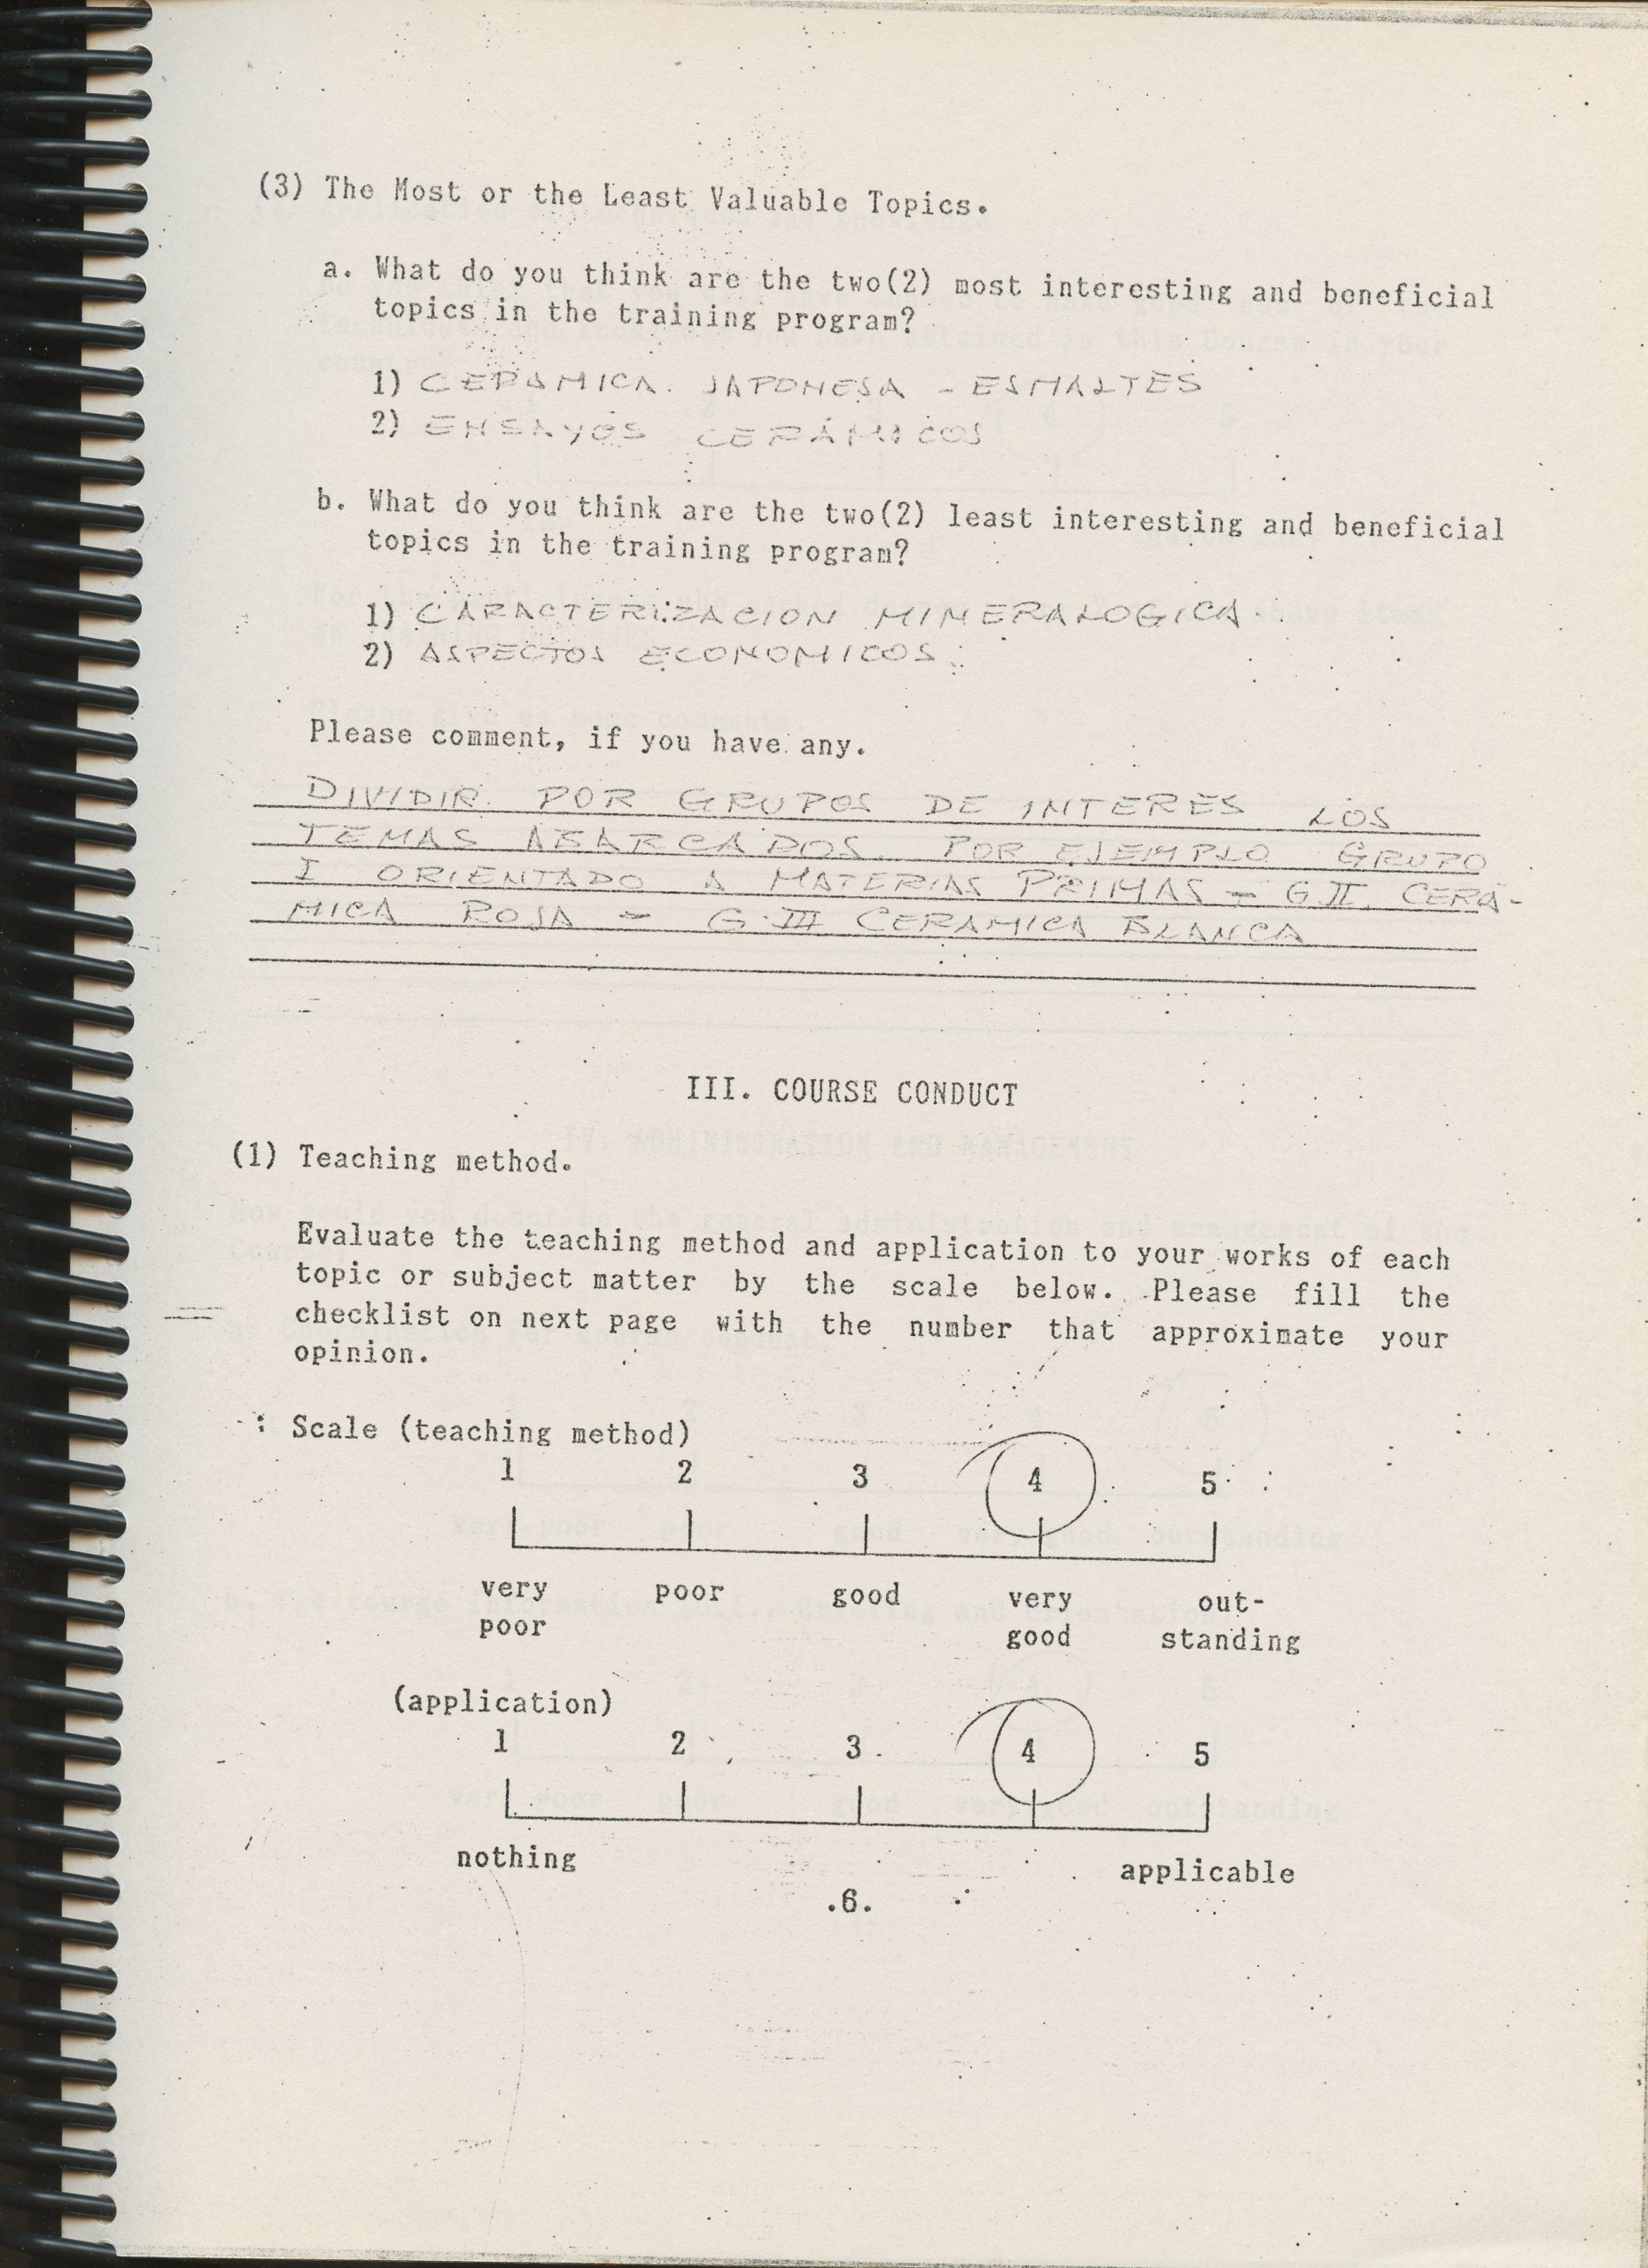 (3) The Most or the Least Valuable Topics.
a. What do you think are the two(2) most interesting and beneficial
topics in the training program?
1) CERAMICA. JAPONESA - ESMALTES
2) ENSAYOS CERÁMICOS
b. What do you think are the two(2) least interesting and beneficial
topics in the training program?
1) CARACTERIZACION MINERALOGICA.
2) ASPECTOS ECONOMICOS.
Please comment, if you have any.
DIVIDIR POR GRUPOS DE INTERES LOS
TEMAS ABARCADOS. POR EJEMPLO GRUPO
I ORIENTADO A MATERIAS PRIMAS = G II. CERA-
MICA ROJA = G. III CERAMICA BLANCA
III. COURSE CONDUCT
(1) Teaching method.
Evaluate the teaching method and application to your works of each
topic or subject matter by the scale below. Please fill the
checklist on next page with the number that approximate your
opinion.
: Scale (teaching method)
1 2 3 4 5
very poor good very out-
poor good standing
(application)
1 2 3 4 5
nothing applicable
.6.